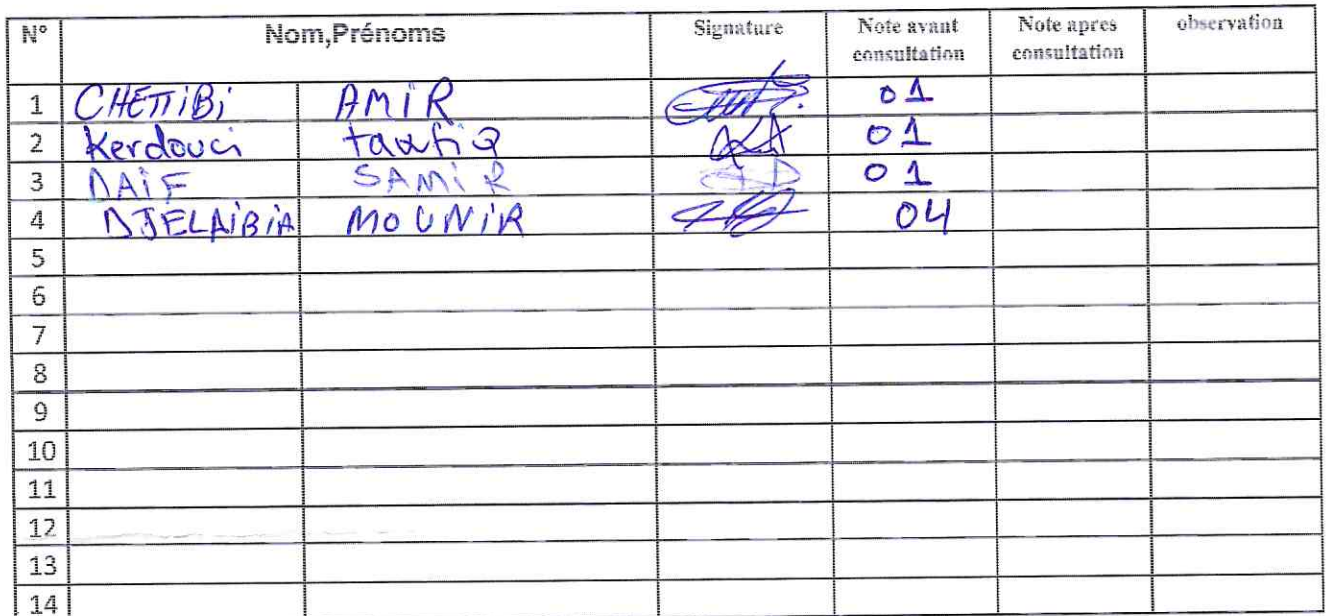 N° Nom,Prénoms Signature Note avant consultation Note apres consultation observation
1 CHETTiBi AMiR 01
2 Kerdouci taoufiQ 01
3 DAiF SAMiR 01
4 DJELAiBiA MOUNiR 04
5
6
7
8
9
10
11
12
13
14